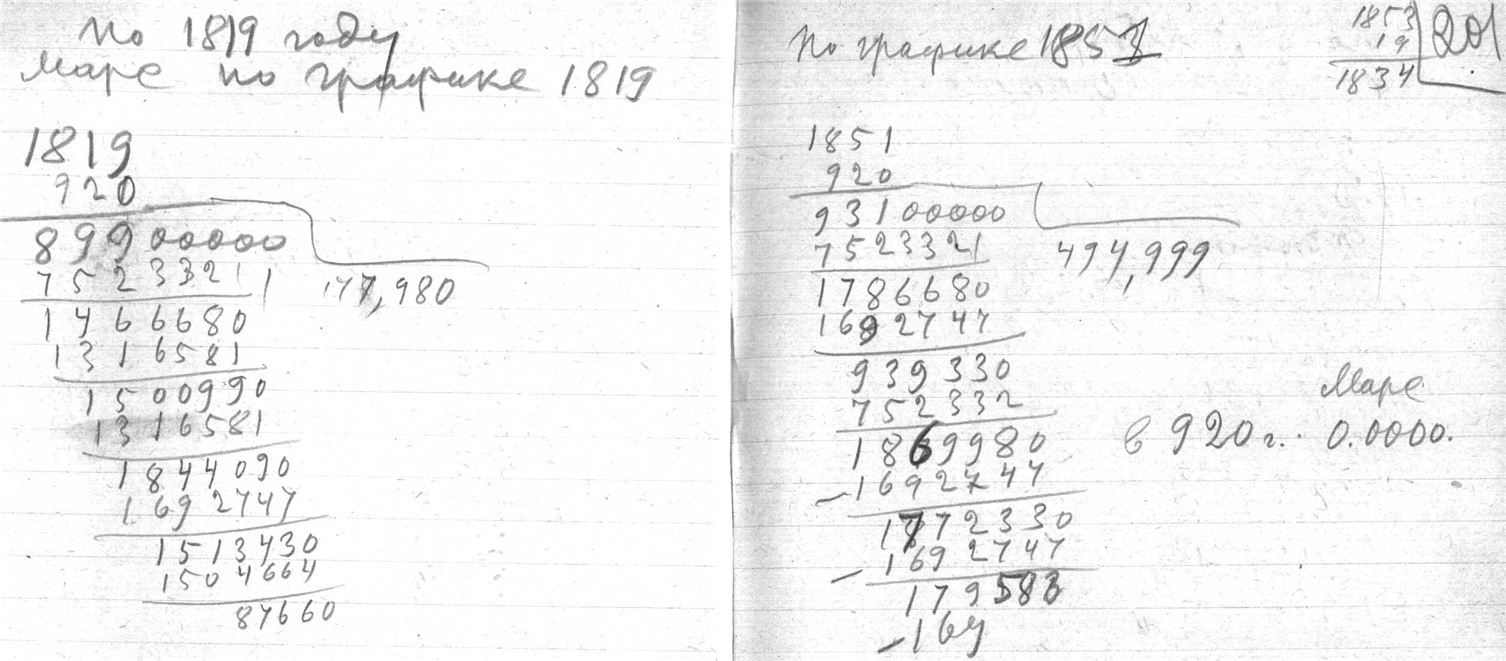 По 1819 году
Марс по графике 1819
1819
920
89900000
7523321 1
147,980
1466680
1316581
1500990
1316581
1844090
1692747
1513430
1504664
87660
По графике 1851
1853
19
1834
20
1851
920
93100000
7523321
494,999
1786680
1692747
939330
752332
1869980
- 1692747
1772330
- 1692747
179583
- 169
Марс
в 920 г. 0.0000.